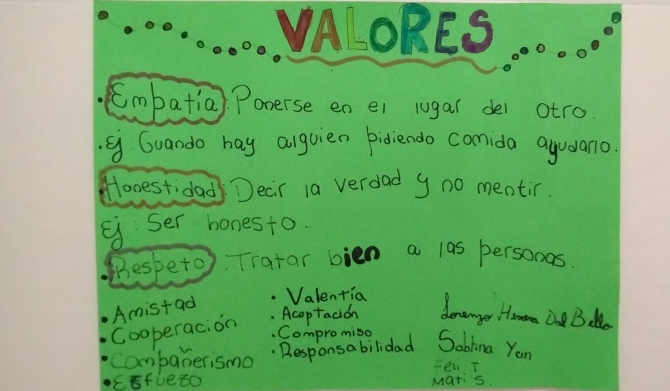 VALORES
• Empatía: Ponerse en el lugar del otro.
• Ej Cuando hay alguien pidiendo comida ayudarlo.
• Honestidad: Decir la verdad y no mentir.
Ej: Ser honesto.
• Respeto: Tratar bien a las personas.
• Amistad
• Cooperación
• Compañerismo
• Esfuerzo
• Valentía
• Aceptación
• Compromiso
• Responsabilidad
Lorenzo Herrera Dal Bello
Sabhna Yan
Feli. T
Mati S.